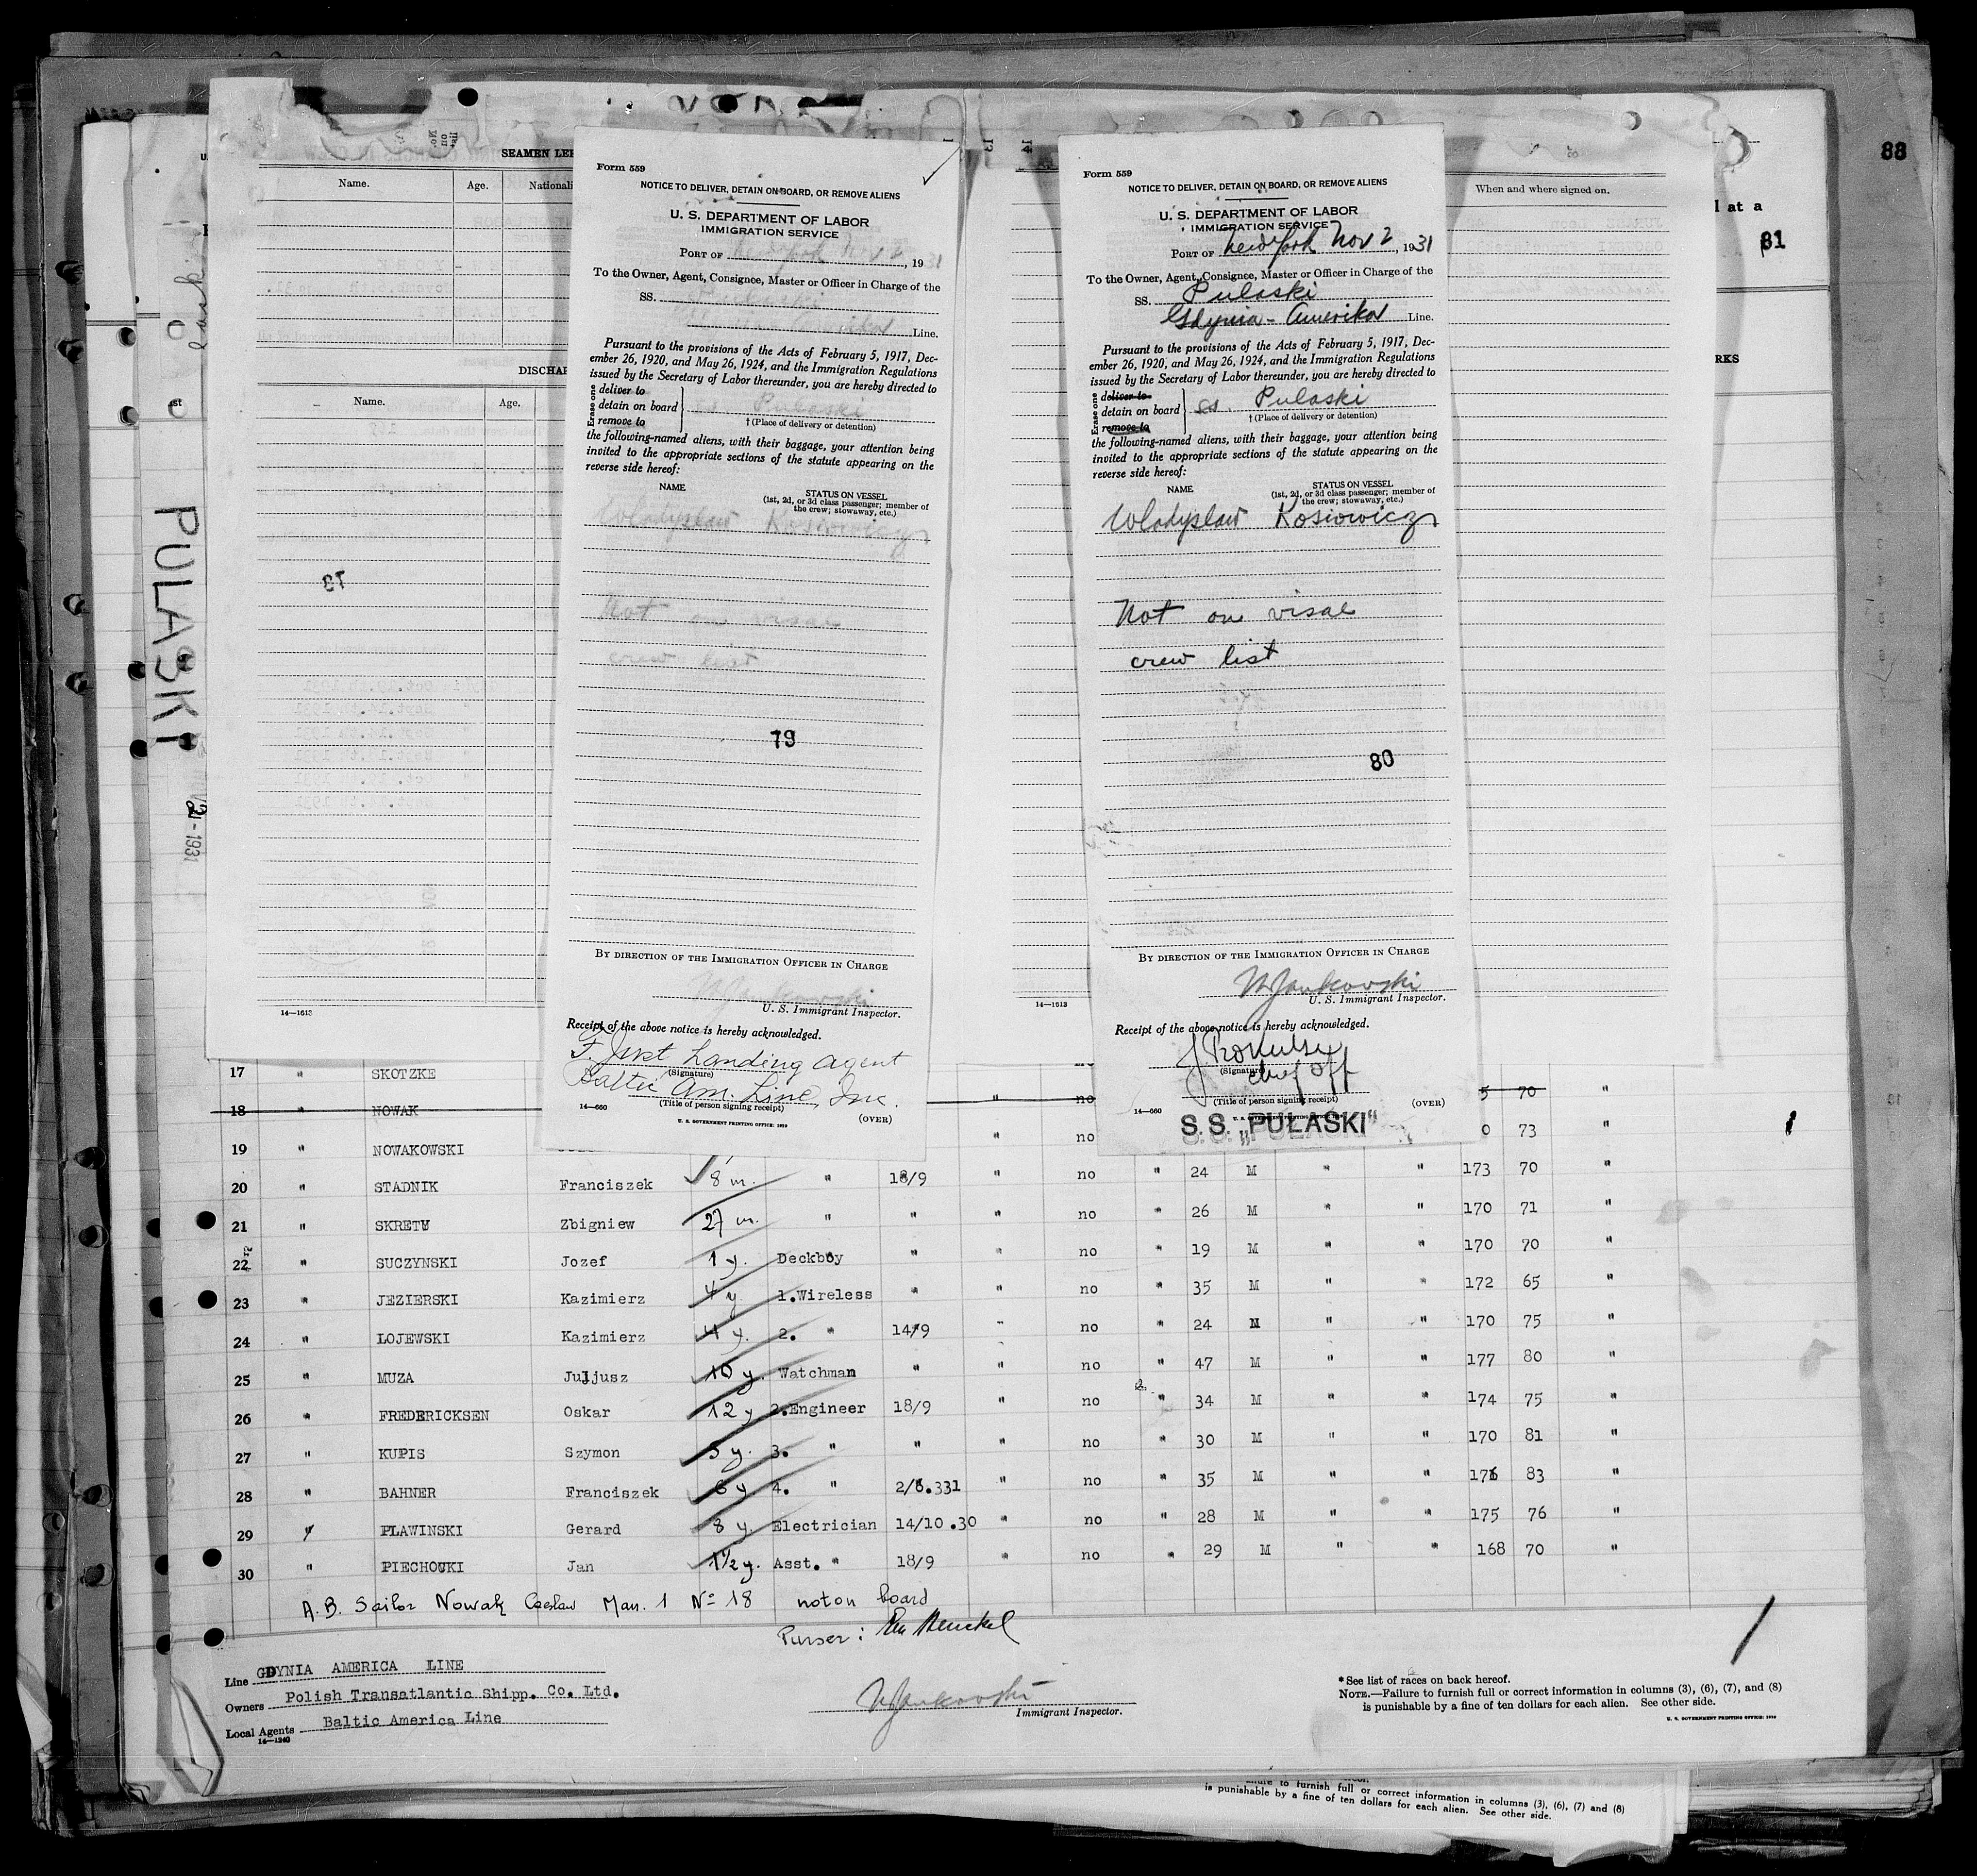 88
81
l at a
RKS
PULASKI
2 - 1931
SEAMEN LE
Name. Age. Nationali
DISCHAR
Name. Age.
79
14—1613
When and where signed on.
14—1613
Form 559
NOTICE TO DELIVER, DETAIN ON BOARD, OR REMOVE ALIENS
U. S. DEPARTMENT OF LABOR
IMMIGRATION SERVICE
PORT OF New York Nov 2, 1931
To the Owner, Agent, Consignee, Master or Officer in Charge of the
SS. Pulaski
Gdynia-Amerika Line.
Pursuant to the provisions of the Acts of February 5, 1917, Dec-
ember 26, 1920, and May 26, 1924, and the Immigration Regulations
issued by the Secretary of Labor thereunder, you are hereby directed to
Erase one
deliver to
detain on board ss. Pulaski
remove to † (Place of delivery or detention)
the following-named aliens, with their baggage, your attention being
invited to the appropriate sections of the statute appearing on the
reverse side hereof:
NAME STATUS ON VESSEL
(1st, 2d, or 3d class passenger; member of
the crew; stowaway, etc.)
Wladyslaw Kosiowicz
Not on visae
crew list
79
BY DIRECTION OF THE IMMIGRATION OFFICER IN CHARGE
Jankovski
U. S. Immigrant Inspector.
Receipt of the above notice is hereby acknowledged.
F. Jvst Landing Agent
(Signature)
Baltic Am. Line, Inc.
(Title of person signing receipt)
14—660 (OVER)
U. S. GOVERNMENT PRINTING OFFICE: 1929
Form 559
NOTICE TO DELIVER, DETAIN ON BOARD, OR REMOVE ALIENS
U. S. DEPARTMENT OF LABOR
IMMIGRATION SERVICE
PORT OF New York Nov 2, 1931
To the Owner, Agent, Consignee, Master or Officer in Charge of the
SS. Pulaski
Gdynia - Amerika Line.
Pursuant to the provisions of the Acts of February 5, 1917, Dec-
ember 26, 1920, and May 26, 1924, and the Immigration Regulations
issued by the Secretary of Labor thereunder, you are hereby directed to
Erase one
deliver to
detain on board ss. Pulaski
remove to † (Place of delivery or detention)
the following-named aliens, with their baggage, your attention being
invited to the appropriate sections of the statute appearing on the
reverse side hereof:
NAME STATUS ON VESSEL
(1st, 2d, or 3d class passenger; member of
the crew; stowaway, etc.)
Wladyslaw Kosiowicz
Not on visae
crew list
80
BY DIRECTION OF THE IMMIGRATION OFFICER IN CHARGE
Jankovski
U. S. Immigrant Inspector.
Receipt of the above notice is hereby acknowledged.
(Signature)
Chief Off
(Title of person signing receipt)
14—660 (OVER)
S. S. „PUŁASKI"
17 " SKOTZKE
18 " NOWAK " no 5 70 "
19 " NOWAKOWSKI " no 0 73 "
20 " STADNIK Franciszek 8 m. " 18/9 " no " 24 M " " 173 70 "
21 " SKRETU Zbigniew 27 m. " " " no " 26 M " " 170 71 "
22 " SUCZYNSKI Jozef 1 y. Deckboy " " no " 19 M " " 170 70 "
23 " JEZIERSKI Kazimierz 4 y 1.Wireless " " no " 35 M " " 172 65 "
24 " LOJEWSKI Kazimierz 4 y. 2. " 14/9 " no " 24 M " " 170 75 "
25 " MUZA Juljusz 10 y. Watchman " " no " 47 M " " 177 80 "
26 " FREDERICKSEN Oskar 12 y 2.Engineer 18/9 " no " 34 M " " 174 75 "
27 " KUPIS Szymon 5 y. 3. " " " no " 30 M " " 170 81 "
28 " BAHNER Franciszek 6 y. 4. " 2/8.331 " no " 35 M " " 176 83 "
29 " PLAWINSKI Gerard 8 y. Electrician 14/10.30 " no " 28 M " " 175 76 "
30 " PIECHOWKI Jan 1½ y. Asst. " 18/9 " no " 29 M " " 168 70 "
A.B. Sailor Nowak Czeslaw Man. 1 No 18 not on board
Purser: Henckel
Line GDYNIA AMERICA LINE
Owners Polish Transatlantic Shipp. Co. Ltd.
Local Agents Baltic America Line
14—1240
Jankovski
Immigrant Inspector.
* See list of races on back hereof.
NOTE.—Failure to furnish full or correct information in columns (3), (6), (7), and (8)
is punishable by a fine of ten dollars for each alien. See other side.
U. S. GOVERNMENT PRINTING OFFICE: 1930
to furnish full or correct information in columns (3), (6), (7) and (8)
is punishable by a fine of ten dollars for each alien. See other side.